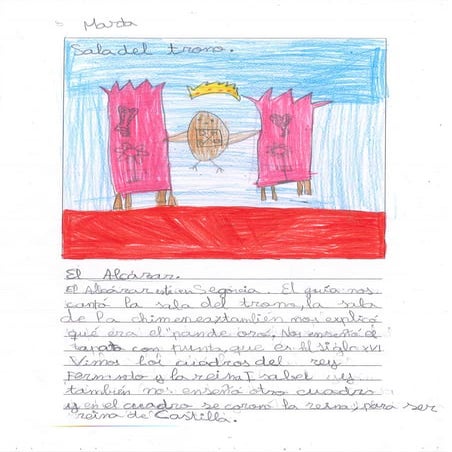 Marta
Sala del trono.
El Alcázar.
El Alcázar está en Segovia. El guía nos
contó la sala del trono, la sala
de la chimenea, también nos explicó
qué era el "pan de oro. Nos enseñó el
zapato con punta, que es del siglo XVI
Vimos los cuadros del rey
Fernando y la reina Isabel y
también nos enseñó otro cuadro
y en el cuadro se coronó la reina, para ser
reina de Castilla.